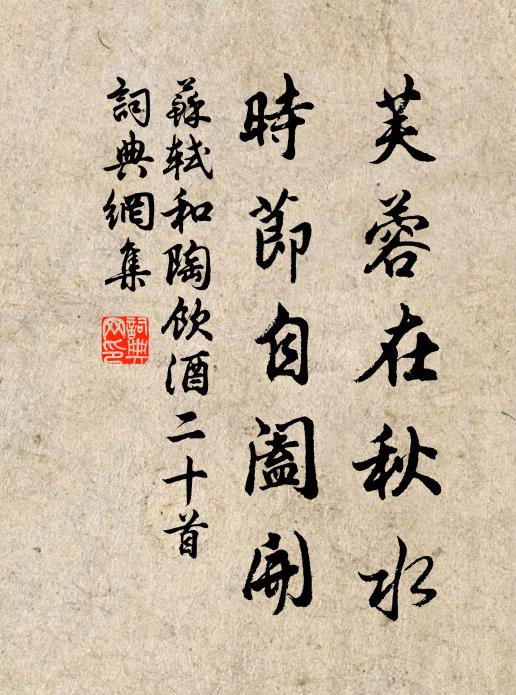 芙蓉在秋水
時節自闔開
蘇軾和陶飲酒二十首
詞典網集
詞典網印